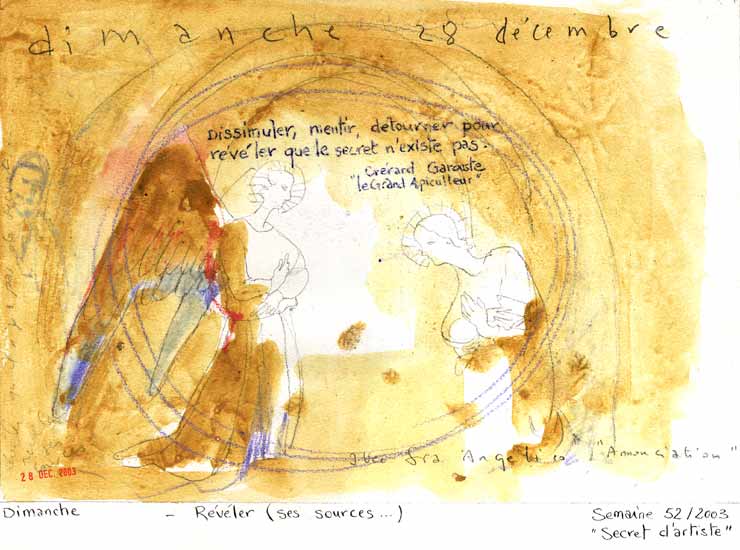 dimanche 28 décembre
Dissimuler, mentir, détourner pour
révéler que le secret n'existe pas.
Gérard Garouste
"le Grand Apiculteur"
avec Fra Angelico "Annonciation"
28 DEC. 2003
Dimanche - Révéler (ses sources...)
Semaine 52/2003
"Secret d'artiste"